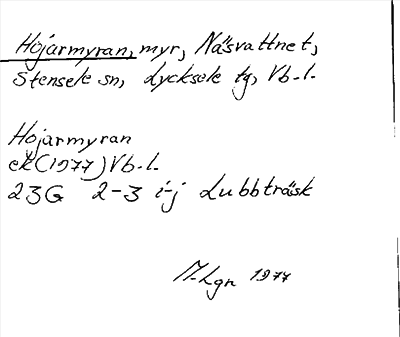 Höjarmyran, myr, Näsvattnet,
Stensele sn, Lycksele tg, Vb.l.
Höjarmyran
ek (1977) Vb.l.
23G 2-3 i-j Lubbträsk
M-Lgn 1977